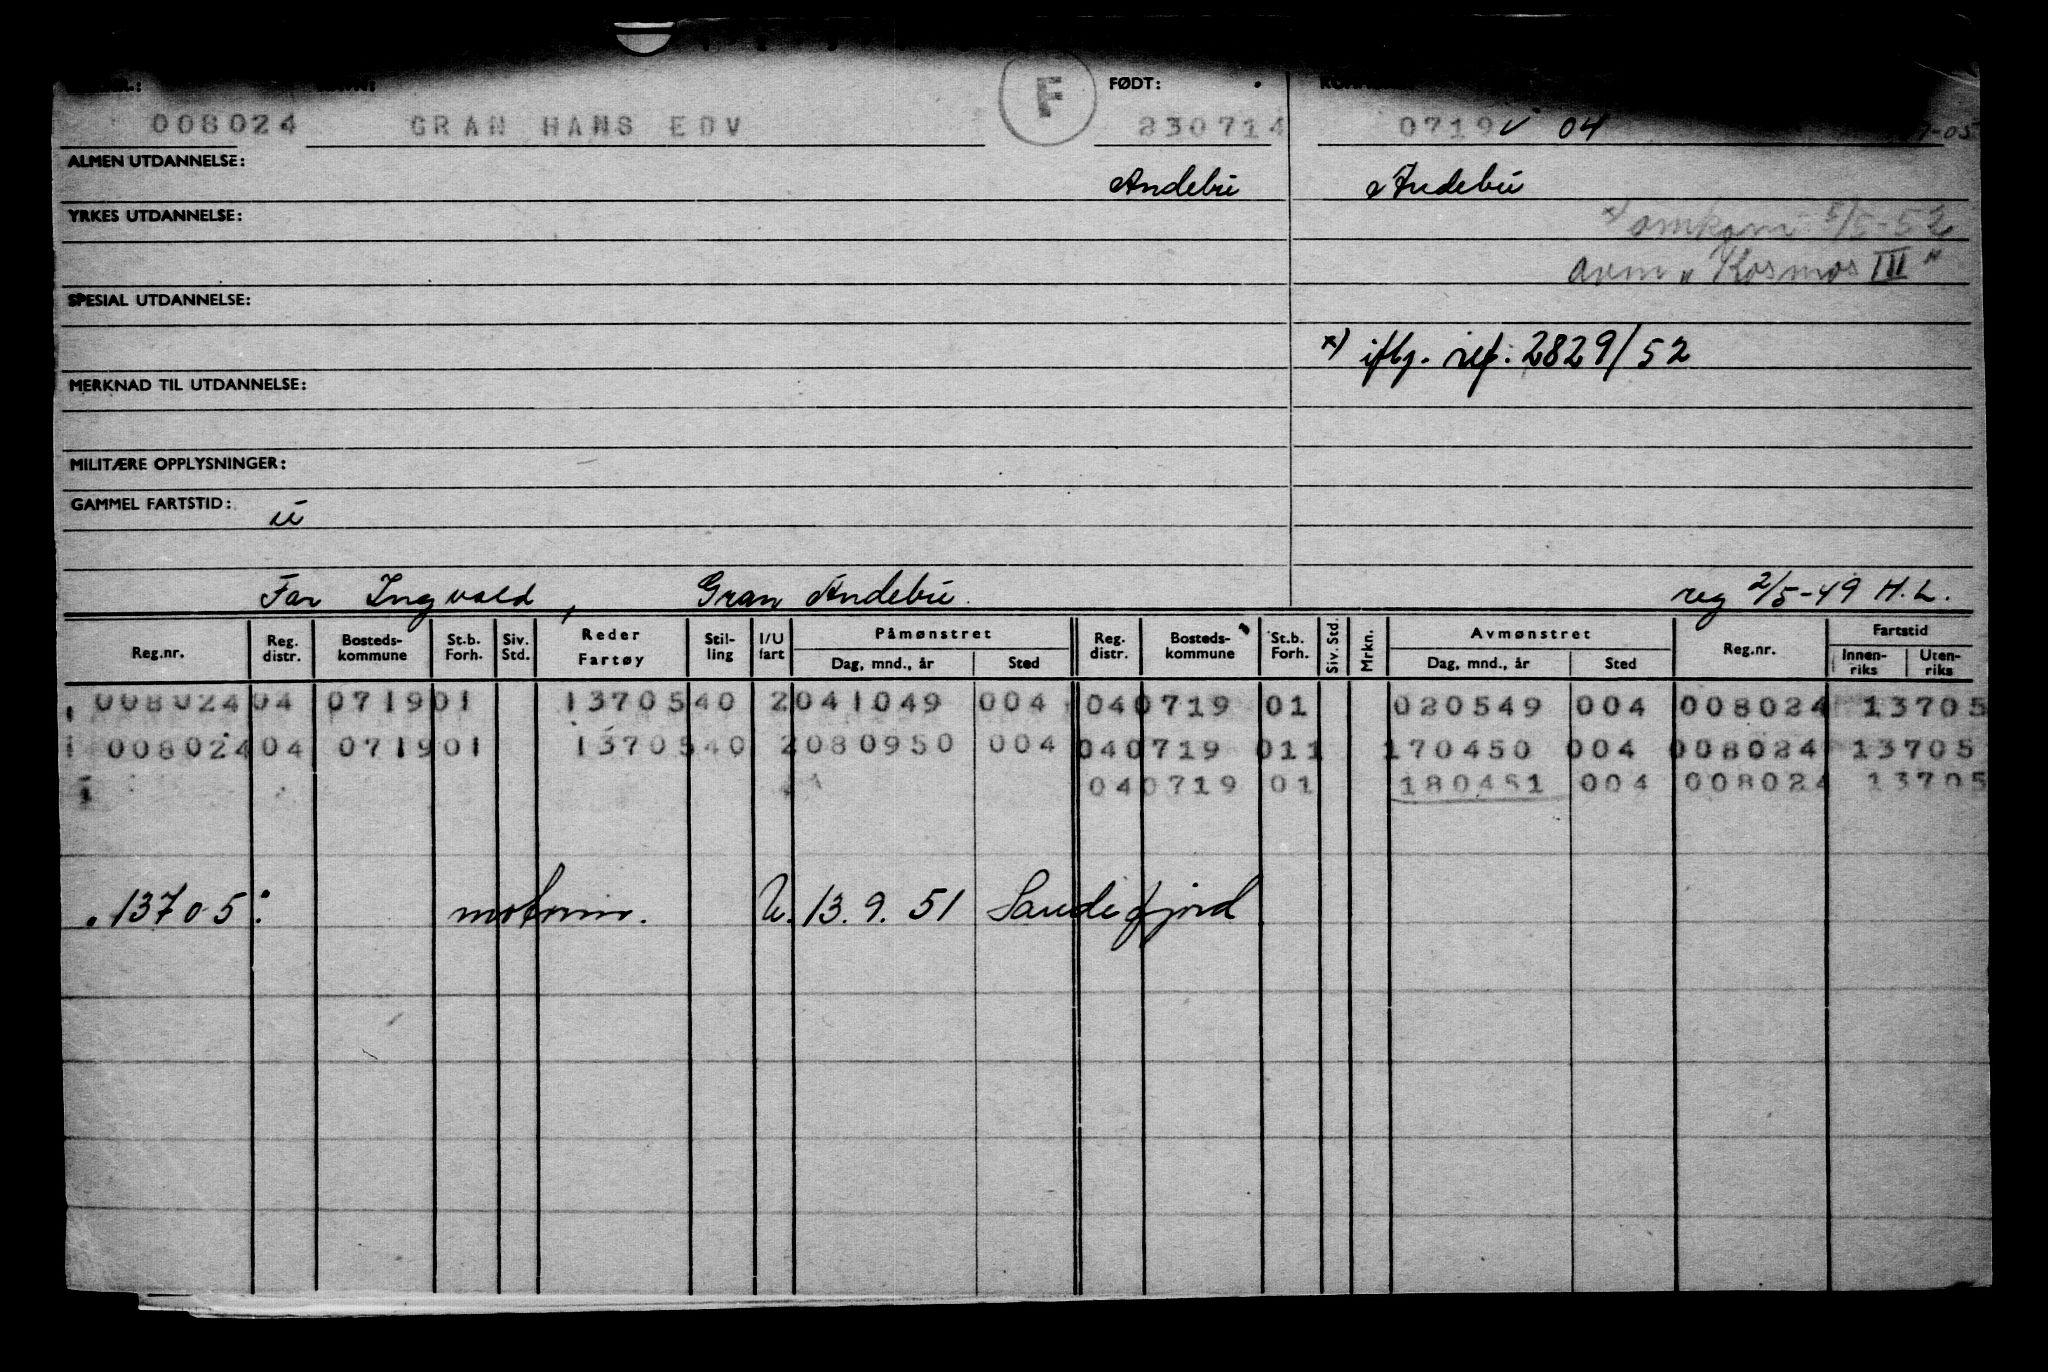 F FØDT:
008024 GRAN HANS EDV 230714 0719 v 04
ALMEN UTDANNELSE:
Andebu Andebu
YRKES UTDANNELSE:
x) omkom 5/5-52
ovm „Kosmos III"
SPESIAL UTDANNELSE:
x) iflg. ref. 2829/52
MERKNAD TIL UTDANNELSE:
MILITÆRE OPPLYSNINGER:
GAMMEL FARTSTID:
u
Far Ingvald, Gran Andebu. reg 2/5-49 H.L.
Reg.nr. Reg. distr. Bosteds-kommune St.b. Forh. Siv. Std. Reder Fartøy Stil-ling I/U fart Påmønstret Dag, mnd., år Sted Reg. distr. Bosteds-kommune St.b. Forh. Siv. Std. Mrkn. Avmønstret Dag, mnd., år Sted Reg.nr. Fartstid Innen-riks Uten-riks
008024 04 0719 01 13705 40 2 041049 004 04 0719 01 020549 004 008024 13705
008024 04 0719 01 13705 40 2 080950 004 04 0719 011 170450 004 008024 13705
04 0719 01 180451 004 008024 13705
13705: U. 13.9.51 Sandefjord